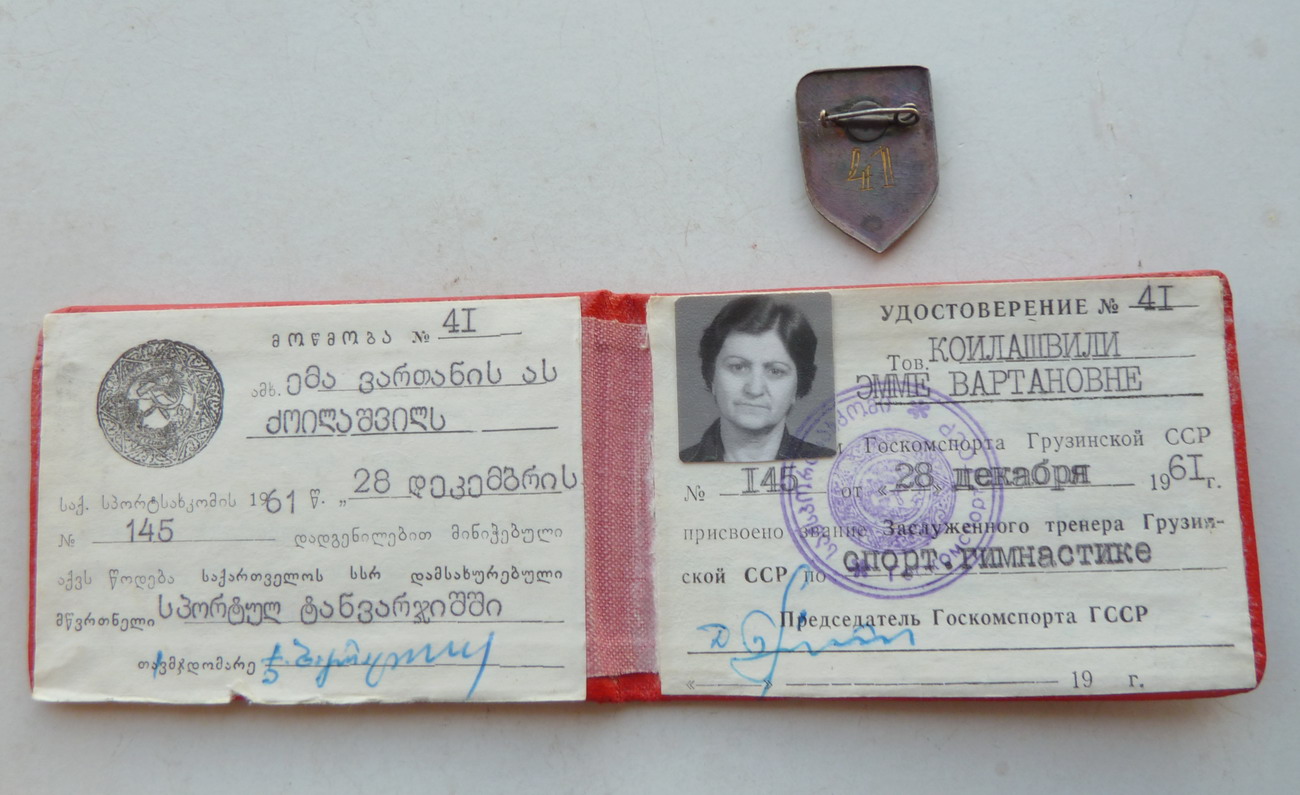 41
მოწმობა № 4I
ამხ. ემა ვართანის ას
ქოიღაშვიღს
საქ. სპორტსახკომის 1961 წ. „28 დეკემბრის
№ 145 დადგენილებით მინიჭებული
აქვს წოდება საქართველოს სსრ დამსახურებული
მწვრთნელი სპორტულ ტანვარჯიშში
თავმჯდომარე
УДОСТОВЕРЕНИЕ № 4I
Тов. КОИЛАШВИЛИ
ЭММЕ ВАРТАНОВНЕ
Госкомспорта Грузинской ССР
№ I45 от «28» декабря 196I г.
присвоено звание Заслуженного тренера Грузин-
ской ССР по спорт.гимнастике
Председатель Госкомспорта ГССР
«» 19 г.